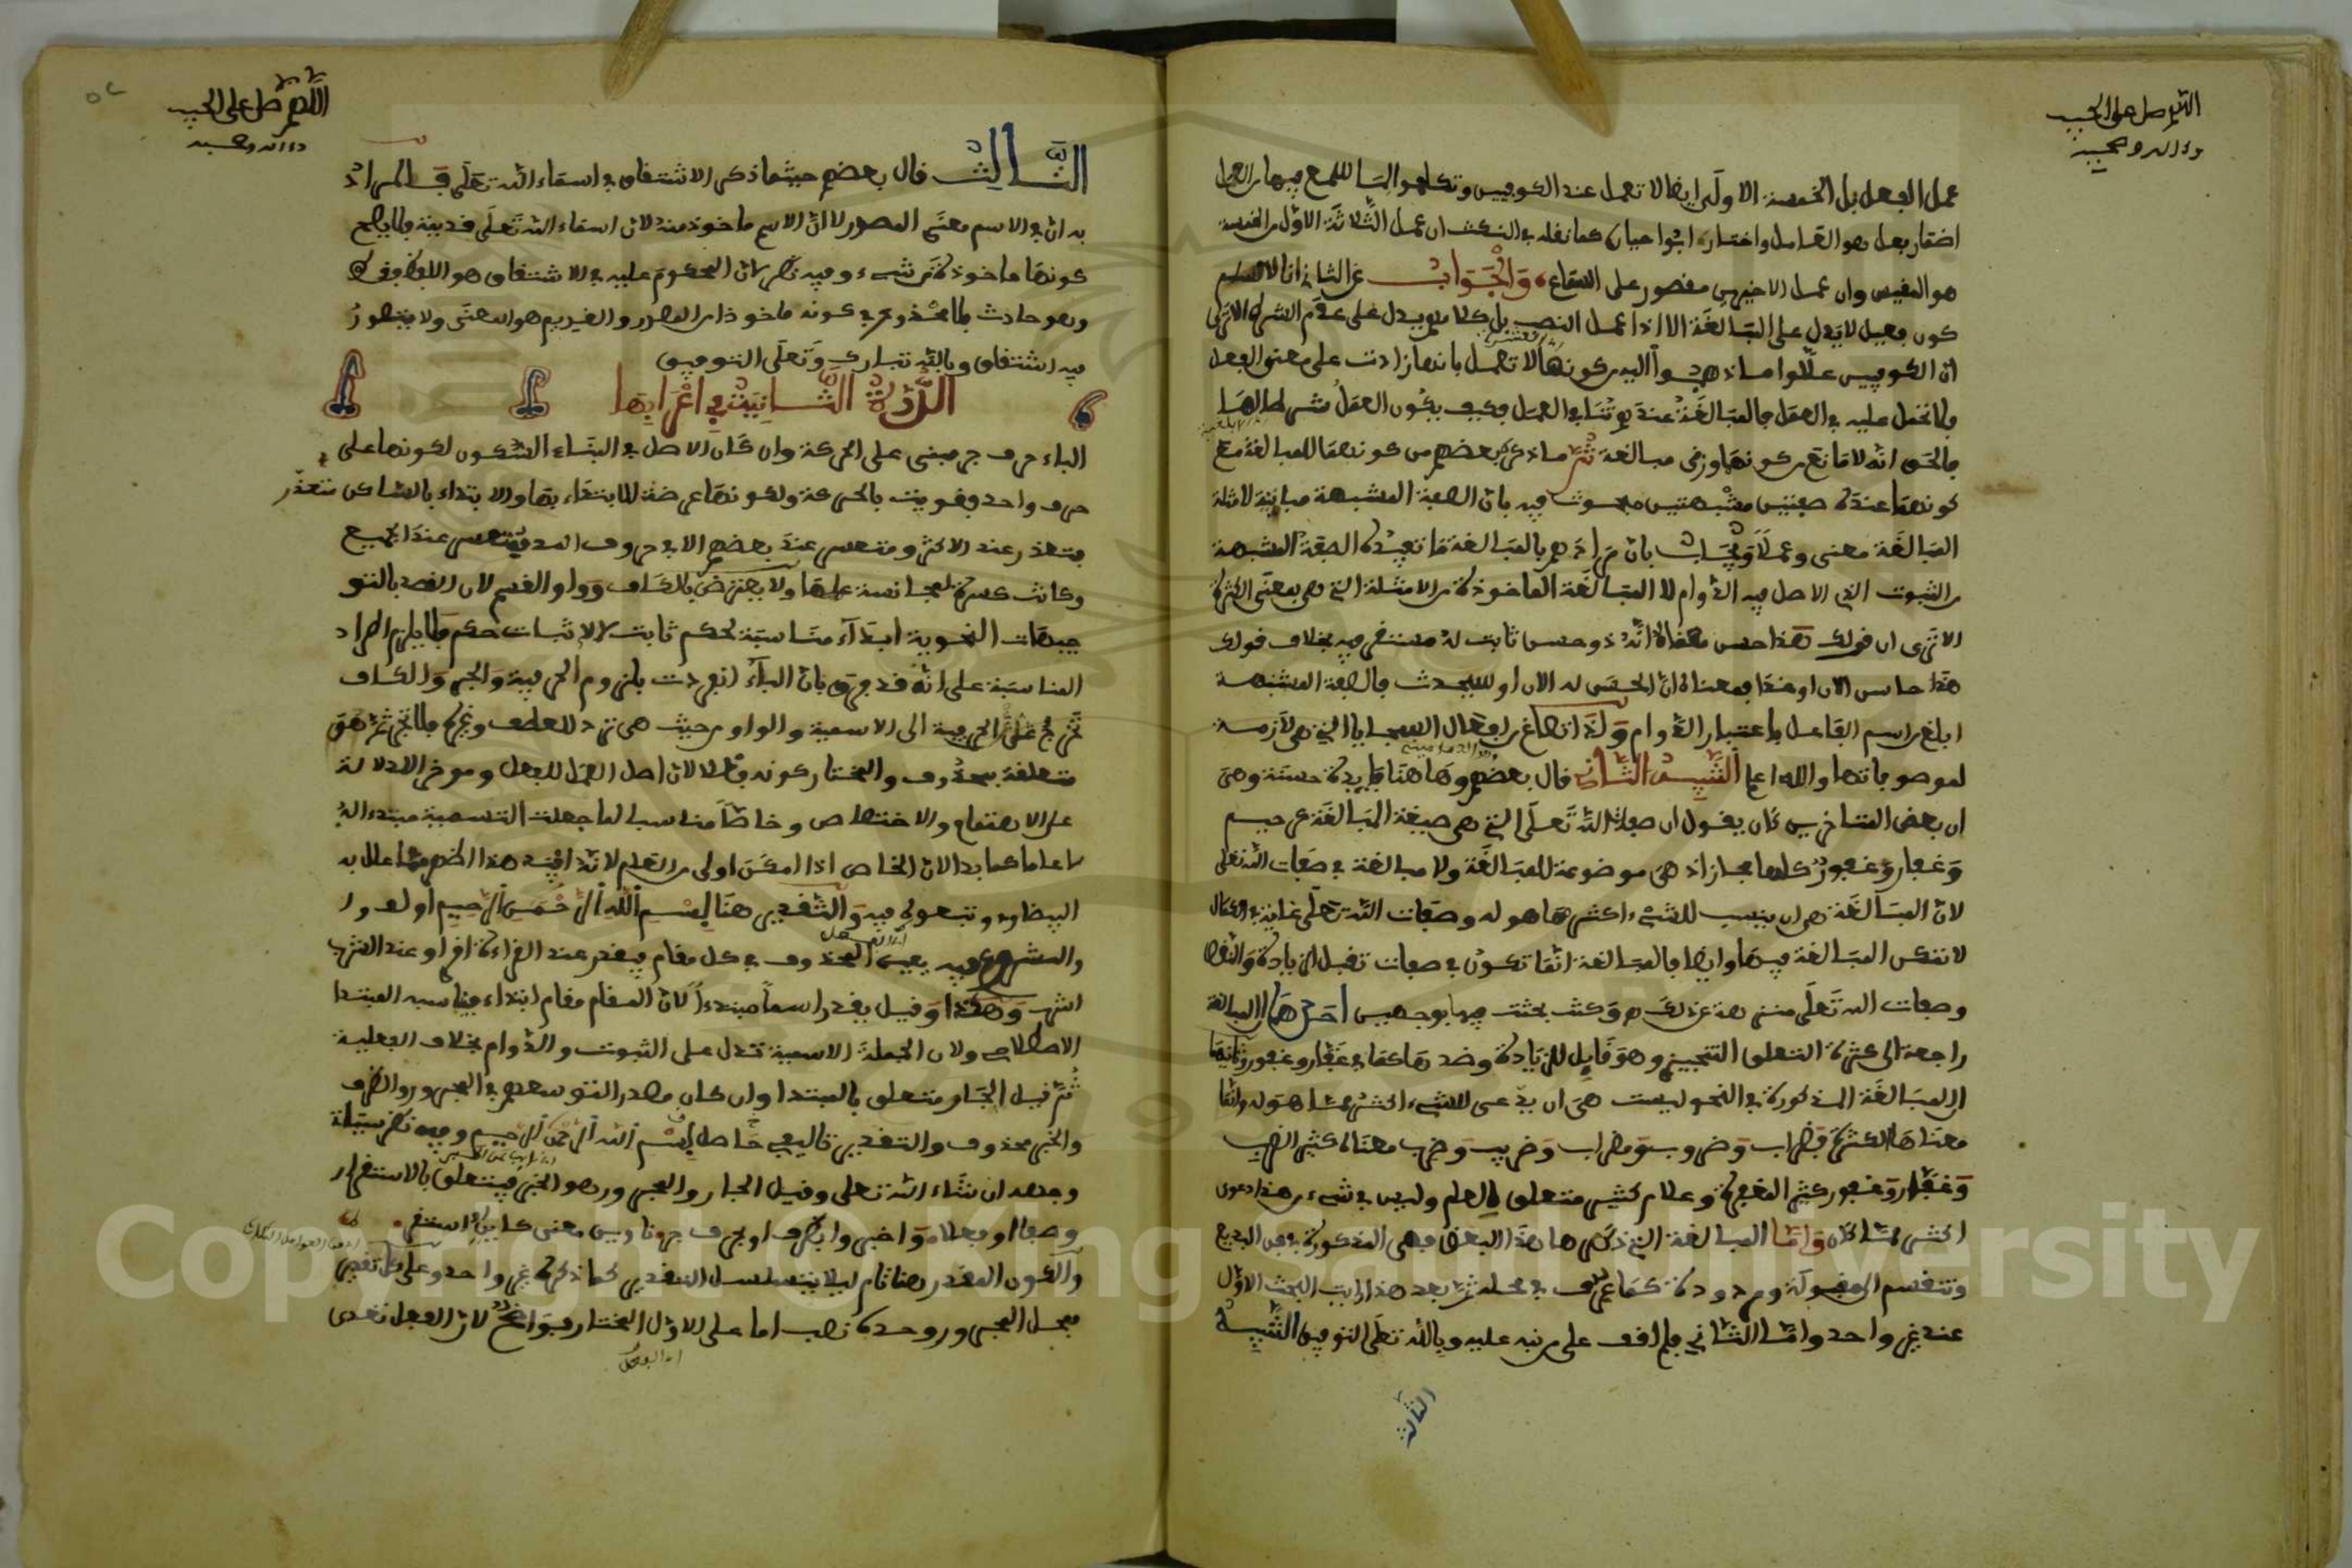 اللهم صل على الحبيب
وءاله وصحبه
عمل الفعل بل الخمسة الاولى ايضا لا تعمل عند الكوفيين وتكلموا السامع فيها
اضمار فعل هو العامل واختاره ابو حيان كما نقله في النكت ان عمل الثلاثة الاول من الخمسة
هو المقيس وان عمل الاخيرين مقصور على السماع والجواب عن الثاني انا لا نسلم
كون فعيل لا يدل على المبالغة الا اذا عمل النصب بل كلامهم يدل على عدم الشرط الا ترى
ان الكوفيين عللوا ما ذهبوا اليه من كونها لا تعمل بانها زادت على معنى الفعل
فلم تحمل عليه في العمل فالمبالغة عندهم تنافي العمل فكيف يكون العمل شرطا لها
فالحق انه لا مانع من كونها وزني مبالغة ثم ما ذكره بعضهم من كونهما للمبالغة مع
كونهما عنده صفتين مشبهتين مبحوث فيه بان الصفة المشبهة مباينة لامثلة
المبالغة معنى وعملا ويجاب بان مرادهم بالمبالغة ما تفيده الصفة المشبهة
من الثبوت الذي الاصل فيه الدوام لا المبالغة الماخوذة من الامثلة التي هي بمعنى الكثرة
الا ترى ان قولك هذا حسن معناه انه ذو حسن ثابت له مستقر فيه بخلاف قولك
هذا حاسن الان او غدا فمعناه ان الحسن له الان او سيحدث فالصفة المشبهة
ابلغ من اسم الفاعل باعتبار الدوام ولذا تصاغ من افعال السجايا التي هي لازمة
لموصوفاتها والله اعلم التنبيه الثاني قال بعضهم وهاهنا فايدة حسنة وهي
ان بعض المتاخرين كان يقول ان صفات الله تعلى التي هي صيغة المبالغة كرحيم
وغفار وغفور كلها مجاز اذ هي موضوعة للمبالغة ولا مبالغة في صفات الله تعلى
لان المبالغة هي ان ينسب للشيء اكثر مما هو له وصفات الله تعلى غاية في الكمال
لا تمكن المبالغة فيها وايضا فالمبالغة انما تكون في صفات تقبل الزيادة والنقصان
وصفات الله تعلى منزهة عن ذلك وكنت بحثت فيها بوجهين احدهما ان المبالغة
راجعة الى كثرة التعلق التنجيزي وهو قابل للزيادة وضدها كما في غفار وغفور وثانيهما
ان المبالغة المذكورة في النحو ليست هي ان يدعى للشيء اكثر مما هو له وانما
معناها الكثرة فضراب وضروب ومضراب وضريب وضرب معناه كثير الضرب
وغفار وغفور كثير المغفرة وعلام كثير متعلق العلم وليس في شيء من هذا دعوى
اكثر مما كان واما المبالغة التي ذكرها هذا البعض فهي المذكورة في فن البديع
وتنقسم الى مقبولة ومردودة كما عرف في محله ثم بعد هذا رايت البحث الاول
عند غير واحد واما الثاني فلم اقف على من نبه عليه وبالله تعلى التوفيق التنبيه
الثالث
اللهم صل على الحبيب
وءاله وصحبه
الثالث قال بعضهم حيثما ذكر الاشتقاق في اسماء الله تعلى فالمراد
به ان في الاسم معنى المصدر لا ان الاسم ماخوذ منه لان اسماء الله تعلى قديمة فلا يصح
كونها ماخوذة من شيء وفيه نظر لان المحكوم عليه في الاشتقاق هو اللفظ فقط
وهو حادث فلا محذور في كونه ماخوذا من المصدر والقديم هو المعنى ولا يتصور
فيه اشتقاق وبالله تبارك وتعلى التوفيق
الدرة الثانية في اعرابها
الباء حرف جر مبني على الحركة وان كان الاصل في البناء السكون لكونها على
حرف واحد فقويت بالحركة ولكونها عرضة للابتداء بها والابتداء بالساكن متعذر
متعذر عند الاكثر ومتعسر عند بعضهم الا في حروف المد فمتعسر عند الجميع
وكانت كسرة لمجانسة عملها ولا يعترض بالكاف وواو القسم لان القصد بالتو
جيهات النحوية ابداء مناسبة لحكم ثابت لا لاثبات حكم فلا يلزم اطراد
المناسبة على انه قد يفرق بان الباء انفردت بلزوم الحرفية والجر والكاف
تخرج عن الحرفية الى الاسمية والواو من حيث هي ترد للعطف وغيره فلا تجر ثم هو
متعلقة بمحذوف والمختار كونه فعلا لان اصل العمل للفعل وموخرا لدلالة
على الاهتمام والاختصاص وخاصا مناسبا لما جعلت التسمية مبتدءا له
لا عاما كما بدا لان الخاص اذا امكن اولى من العام لانه افيد هذا اظهر مما علل به
البيضاوي وتبعوه فيه والتقدير هنا بسم الله الرحمن الرحيم اولف
والمشروع فيه يعين المحذوف في كل مقام فيقدر عند القراءة اقرا وعند الشرب
اشرب وهكذا وقيل يقدر اسما مبتدءا لان المقام مقام ابتداء فيناسبه المبتدا
الاصطلاحي ولان الجملة الاسمية تدل على الثبوت والدوام بخلاف الفعلية
ثم قيل الجار متعلق بالمبتدا وان كان مصدرا لتوسعهم في المجرور والظرف
والخبر محذوف والتقدير تاليفي حاصل بسم الله الرحمن الرحيم وفيه نظر سياتي
وبعده ان شاء الله تعلى وقيل الجار والمجرور هو الخبر فيتعلق بالاستقرار
وصفا او فعلا واخبروا بظرف او بحرف جر ناوين معنى كاين او استقر
والكون المقدر هنا تام ليلا يتسلسل التقدير كما ذكره غير واحد وعلى كل تقدير
فمحل المجرور وحده نصب اما على الاول المختار فواضح لان الفعل تعدى
اي الفعل